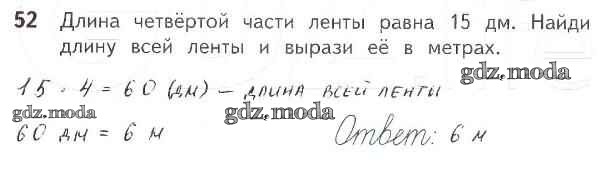 52 Длина четвёртой части ленты равна 15 дм. Найди
длину всей ленты и вырази её в метрах.
gdz.moda
15 · 4 = 60 (дм) – длина всей ленты
gdz.moda gdz.moda
60 дм = 6 м Ответ: 6 м